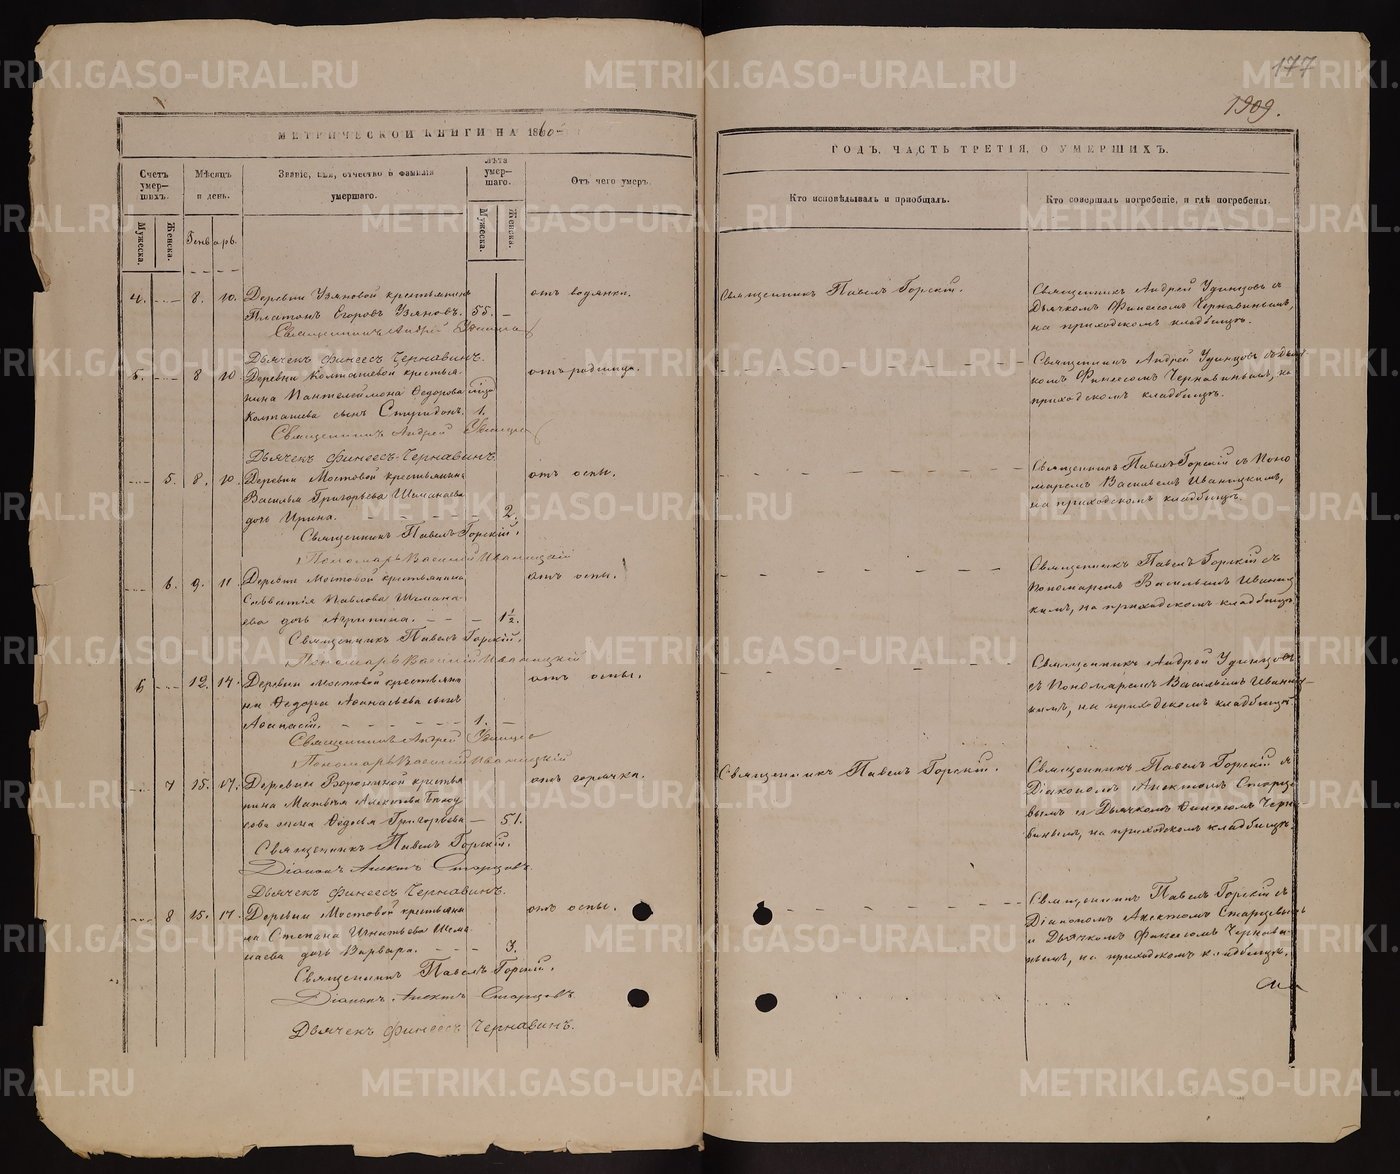 177
1909.
МЕТРИЧЕСКОЙ КНИГИ НА 1860
Счетъ умер-шихъ.
Мѣсяцъ и день.
Званіе, имя, отчество и фамилія умершаго.
Лѣта умер-шаго.
Отъ чего умеръ.
Мужеска.
Женска.
Генварь.
Мужеска.
Женска.
4. 8. 10. Деревни Узяновой крестьянинъ отъ водянки.
Платонъ Егоровъ Узяновъ. 55.
Священникъ Андрей Удинцовъ
Дьячекъ Финеесъ Чернавинъ.
5. 8 10 Деревни Колташевой крестья- отъ родимца.
нина Пантелеймона Ѳедорова
Колташева сынъ Спиридонъ. 1.
Священникъ Андрей Удинцовъ
Дьячекъ Финеесъ Чернавинъ.
5. 8. 10. Деревни Мостовой крестьянина отъ оспы.
Василья Григорьева Шеманаева
дочь Ирина. 2.
Священникъ Павелъ Горскій.
Пономарь Василій Иваницкій
6. 9. 11 Деревни Мостовой крестьянина отъ оспы.
Савватія Павлова Шемана-
ева дочь Агрипина. 1½.
Священникъ Павелъ Горскій.
Пономарь Василій Иваницкій
6 12. 14. Деревни Мостовой крестьяни- отъ оспы.
на Ѳедора Аѳанасьева сынъ
Аѳанасій. 1.
Священникъ Андрей Удинцовъ
Пономарь Василій Иваницкій
7 15. 17. крестья- отъ горячки.
нина Матвѣя Алексѣева
жена Ѳедосья Григорьева 51.
Священникъ Павелъ Горскій.
Діаконъ Анектъ Старцовъ.
Дьячекъ Финеесъ Чернавинъ.
8 15. 17. Деревни Мостовой крестьяни- отъ оспы.
на Степана Игнатьева Шема-
наева дочь Варвара. 3.
Священникъ Павелъ Горскій.
Діаконъ Анектъ Старцовъ
Дьячекъ Финеесъ Чернавинъ.
ГОДЪ, ЧАСТЬ ТРЕТІЯ, О УМЕРШИХЪ.
Кто исповѣдывалъ и пріобщалъ.
Кто совершалъ погребеніе, и гдѣ погребены.
Священникъ Павелъ Горскій.
Священникъ Андрей Удинцовъ съ
Дьячкомъ Финеесомъ Чернавинымъ,
на приходскомъ кладбищѣ.
Священникъ Андрей Удинцовъ съ Дьяч-
комъ Финеесомъ Чернавинымъ, на
приходскомъ кладбищѣ.
Священникъ Павелъ Горскій съ Поно-
маремъ Васильемъ Иваницкимъ,
на приходскомъ кладбищѣ.
Священникъ Павелъ Горскій съ
Пономаремъ Васильемъ Иваниц-
кимъ, на приходскомъ кладбищѣ.
Священникъ Андрей Удинцовъ
съ Пономаремъ Васильемъ Иваниц-
кимъ, на приходскомъ кладбищѣ.
Священникъ Павелъ Горскій.
Священникъ Павелъ Горскій съ
Діакономъ Анектомъ Старце-
вымъ и Дьячкомъ Финеесомъ Черна-
винымъ, на приходскомъ кладбищѣ.
Священникъ Павелъ Горскій съ
Діакономъ Анектомъ Старцевымъ
и Дьячкомъ Финеесомъ Чернави-
нымъ, на приходскомъ кладбищѣ.
METRIKI.GASO-URAL.RU